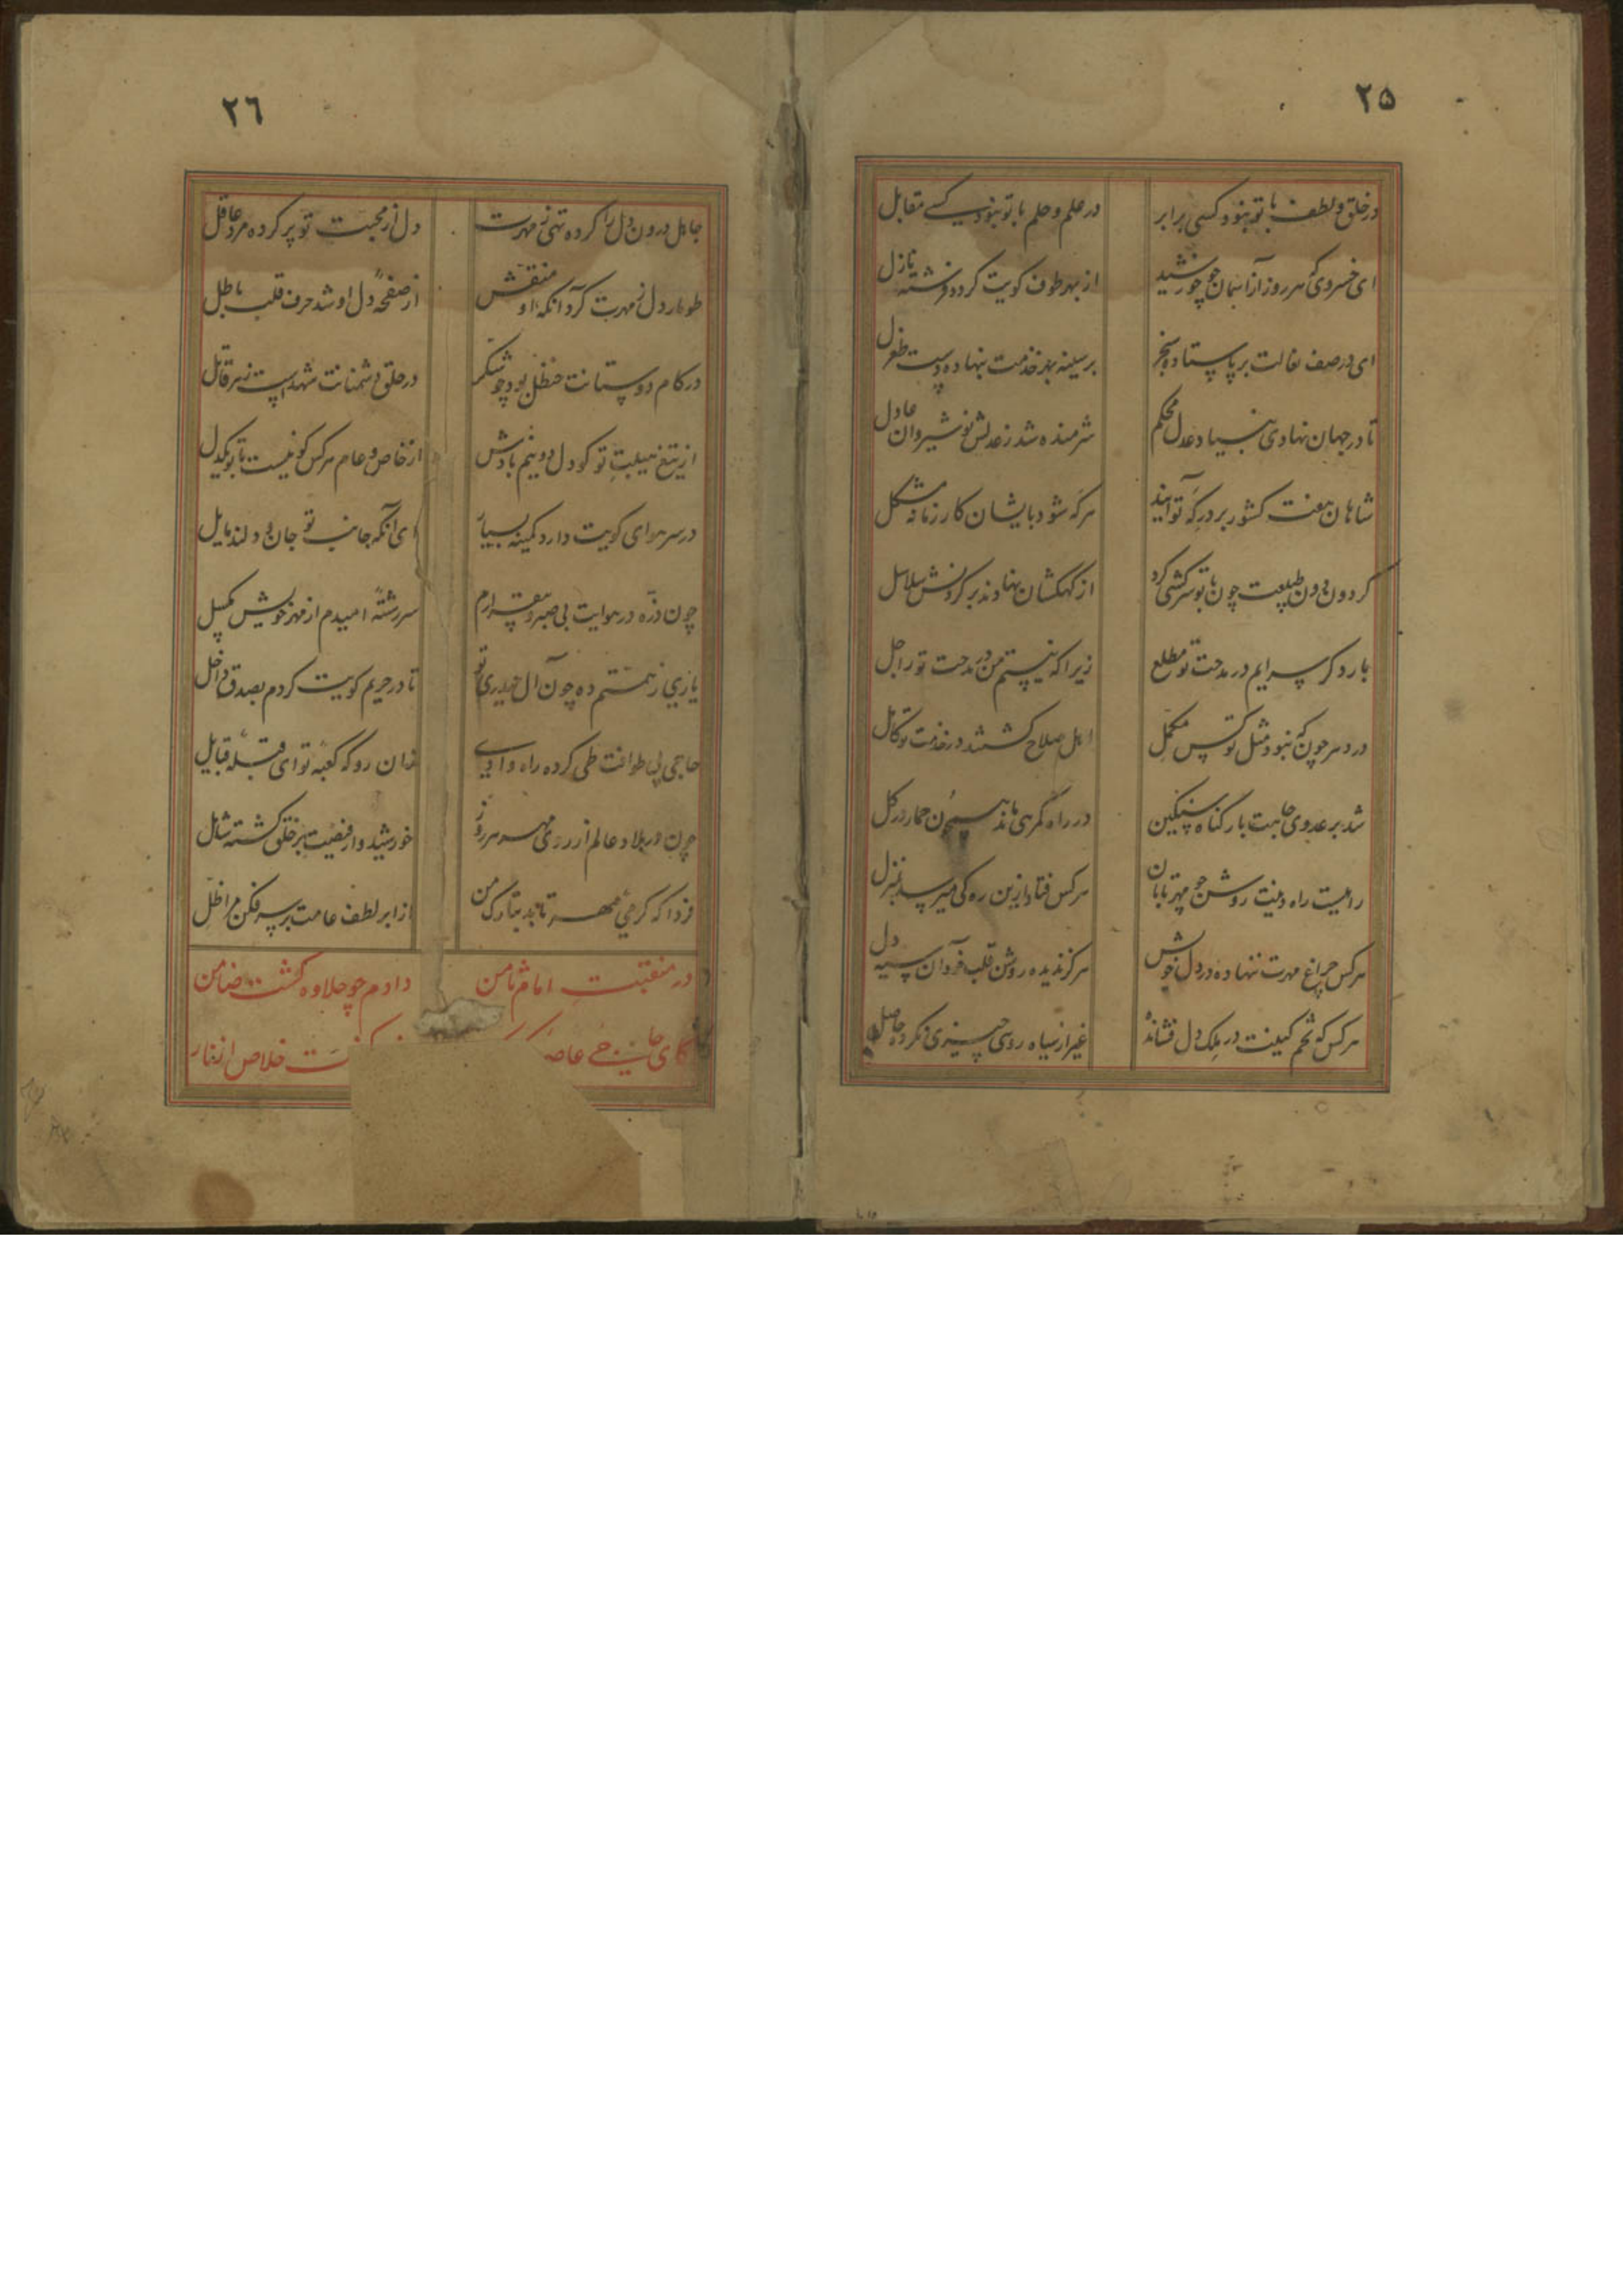 ۲۵
در خلق و لطف با تو نبود کسی برابر در علم و حلم با تو نبود کسے مقابل
ای خسروی که هر روز از آسمان چو خورشید از بهر طوف کویت کرده فرشته نازل
ای در صف نعالت بر پا ستاده سنجر بر سینه بهر خدمت بنهاده دست طغرل
تا در جهان نهادی بنیاد عدل محکم شرمنده شد ز عدلش نوشیروان عادل
شاهان هفت کشور بر درگه تو آیند هرگه شود بایشان کار زمانه مشکل
گردون دون طبیعت چون با تو سرکشی کرد از کهکشان نهادند بر گردنش سلاسل
بار دگر سرایم در مدحت تو مطلع زیرا که نیستم من در مدحت تو راجل
در دهر چون که نبود مثل تو کس مکمل اهل صلاح گشتند در خدمت تو کامل
شد بر عدوی جاهت بار گناه سنگین در راه گمرهی ماند همچون حمار در گل
راهیت راه دینت روشن چو مهر تابان هر کس فتاد ازین ره کی میرسد بمنزل
هر کس چراغ مهرت ننهاده در دل خویش هرگز ندیده روشن قلب خود آن سیه دل
هر کس که تخم کینت در ملک دل فشانده غیر از سیاه رویی چیزی نکرده حاصل
۲٦
جاهل درون دل را کرده تهی ز مهرت دل از محبت تو پر کرده مرد عاقل
طومار دل ز مهرت کرد آنکه او منقش از صفحه دل او شد حرف قلب باطل
در کام دوستانت حنظل بود چو شکر در حلق دشمنانت شهد است زهر قاتل
از تیغ هیبت تو کو دل دو نیم بادش از خاص و عام هر کس کو نیست با تو یکدل
در سر هوای کویت دارد کمینه بسیار ای آنکه جانب تو جان و دلند مایل
چون ذره در هوایت بی صبر و بیقرارم سر رشته امیدم از مهر خویش مگسل
یاری ز همتم ده چون آل حیدری تو تا در حریم کویت کردم بصدق داخل
حاجی پی طوافت طی کرده راه وادی زان رو که کعبه تو ای قبله قبایل
چون در بلاد عالم از روی مهر هر روز خورشیدوار فیضت بر خلق گشته شامل
فردا که گرمی مهر تابد بتارک من از ابر لطف عامت بر سر فکن مرا ظل
در منقبت امام ثامن دادم چو جلاوه گشت ضامن
کای حامی عاصه خلاص از نار